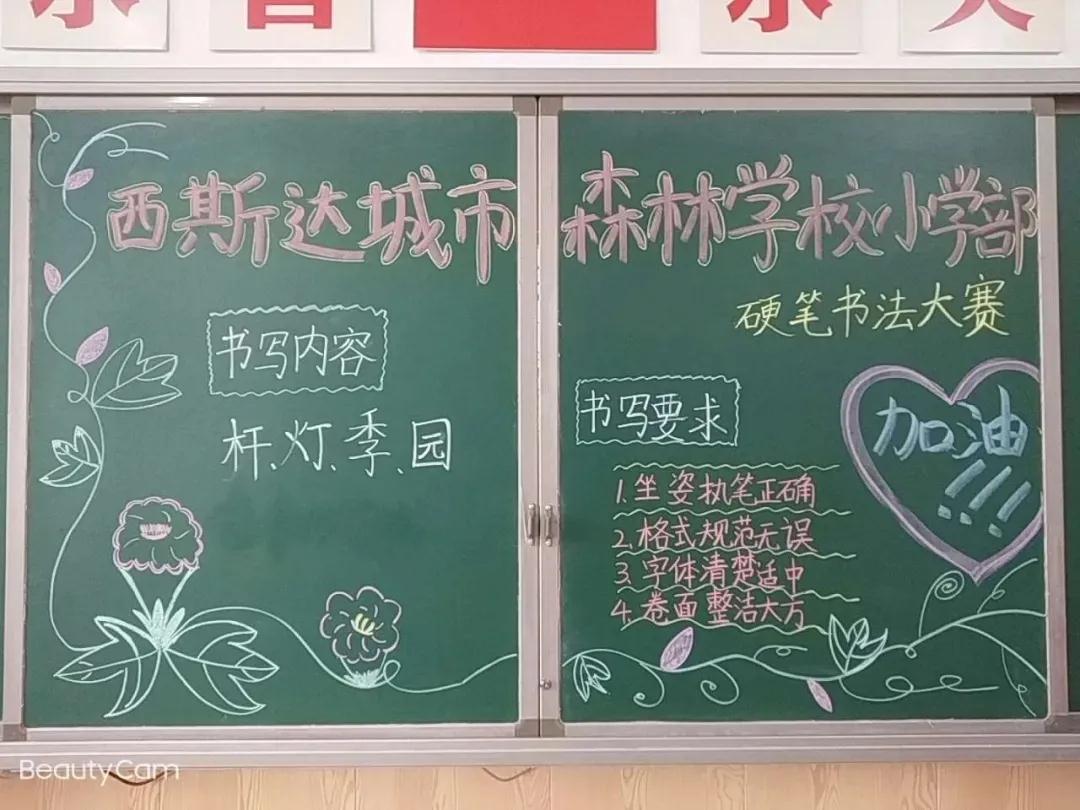 西斯达城市森林学校小学部
硬笔书法大赛
书写内容
杆、灯、季、园
书写要求
1.坐姿执笔正确
2.格式规范无误
3.字体清楚适中
4.卷面整洁大方
加油
!!!
BeautyCam